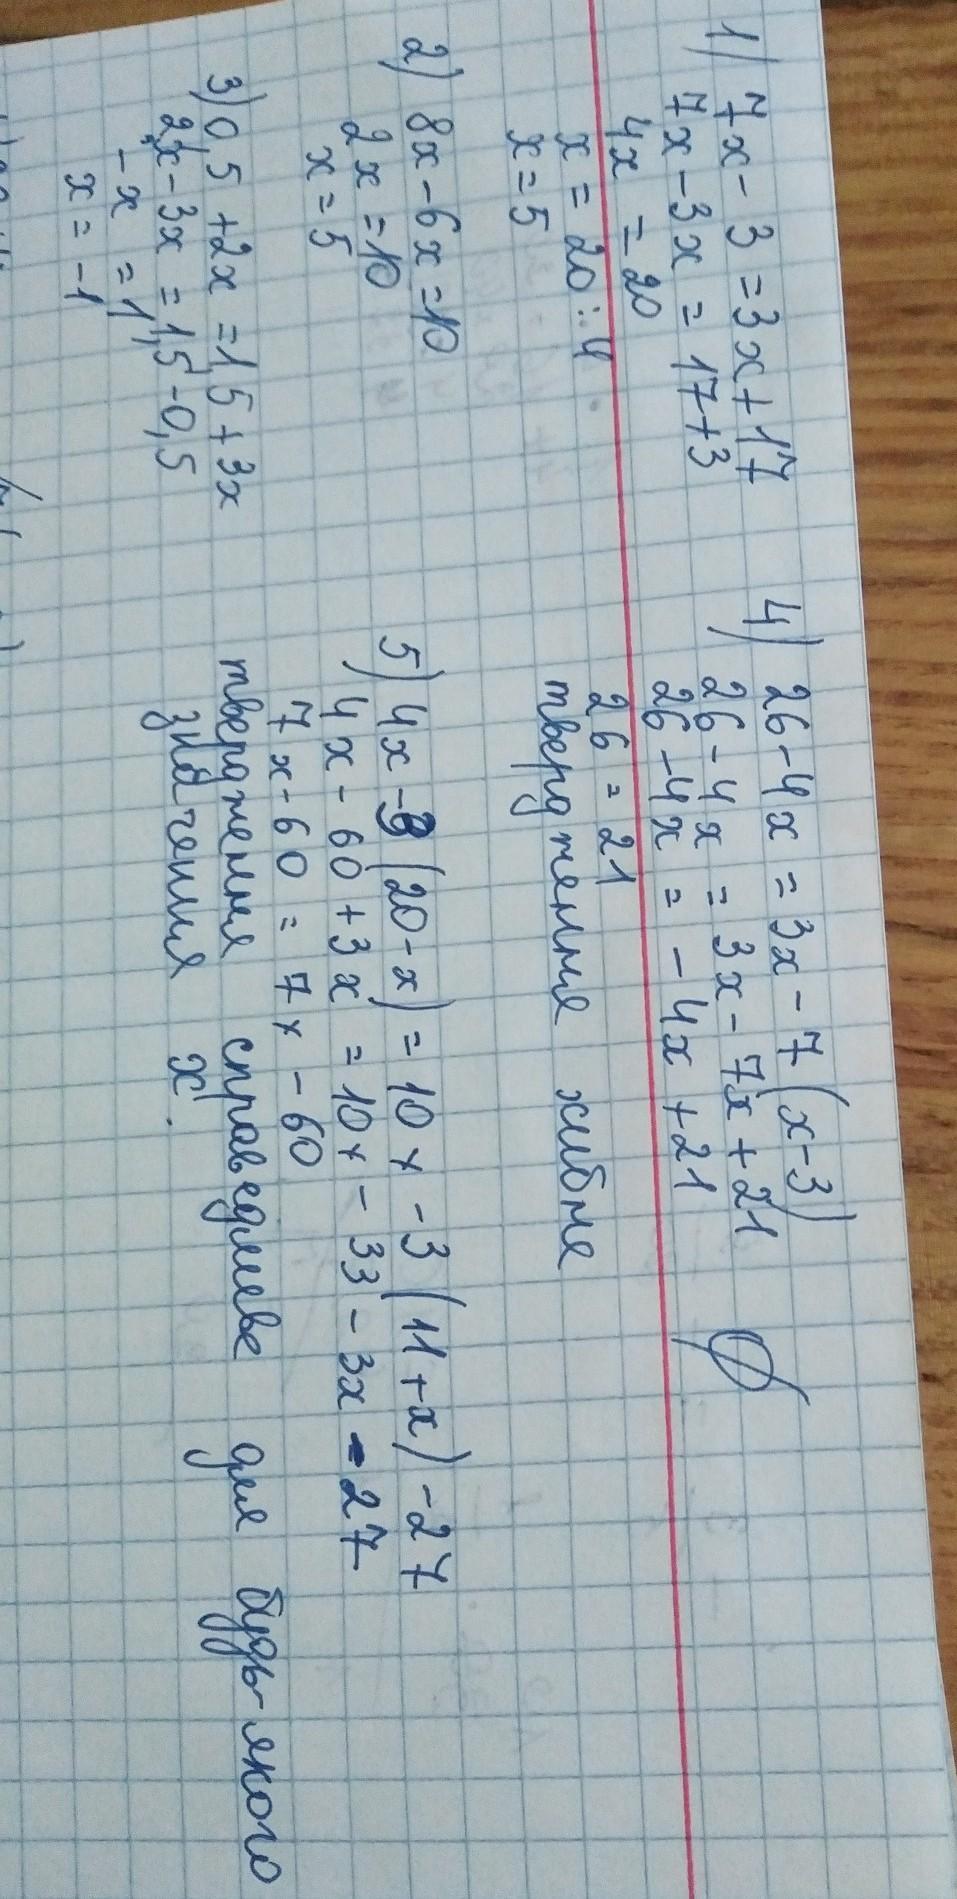 1) 7x - 3 = 3x + 17
7x - 3x = 17 + 3
4x = 20
x = 20 : 4
x = 5
2) 8x - 6x = 10
2x = 10
x = 5
3) 0,5 + 2x = 1,5 + 3x
2x - 3x = 1,5 - 0,5
-x = 1
x = -1
4) 26 - 4x = 3x - 7(x - 3)
26 - 4x = 3x - 7x + 21
26 - 4x = -4x + 21
26 = 21
твердження хибне
5) 4x - 3(20 - x) = 10x - 3(11 + x) - 27
4x - 60 + 3x = 10x - 33 - 3x - 27
7x - 60 = 7x - 60
твердження справедливе для будь-якого
значення x.